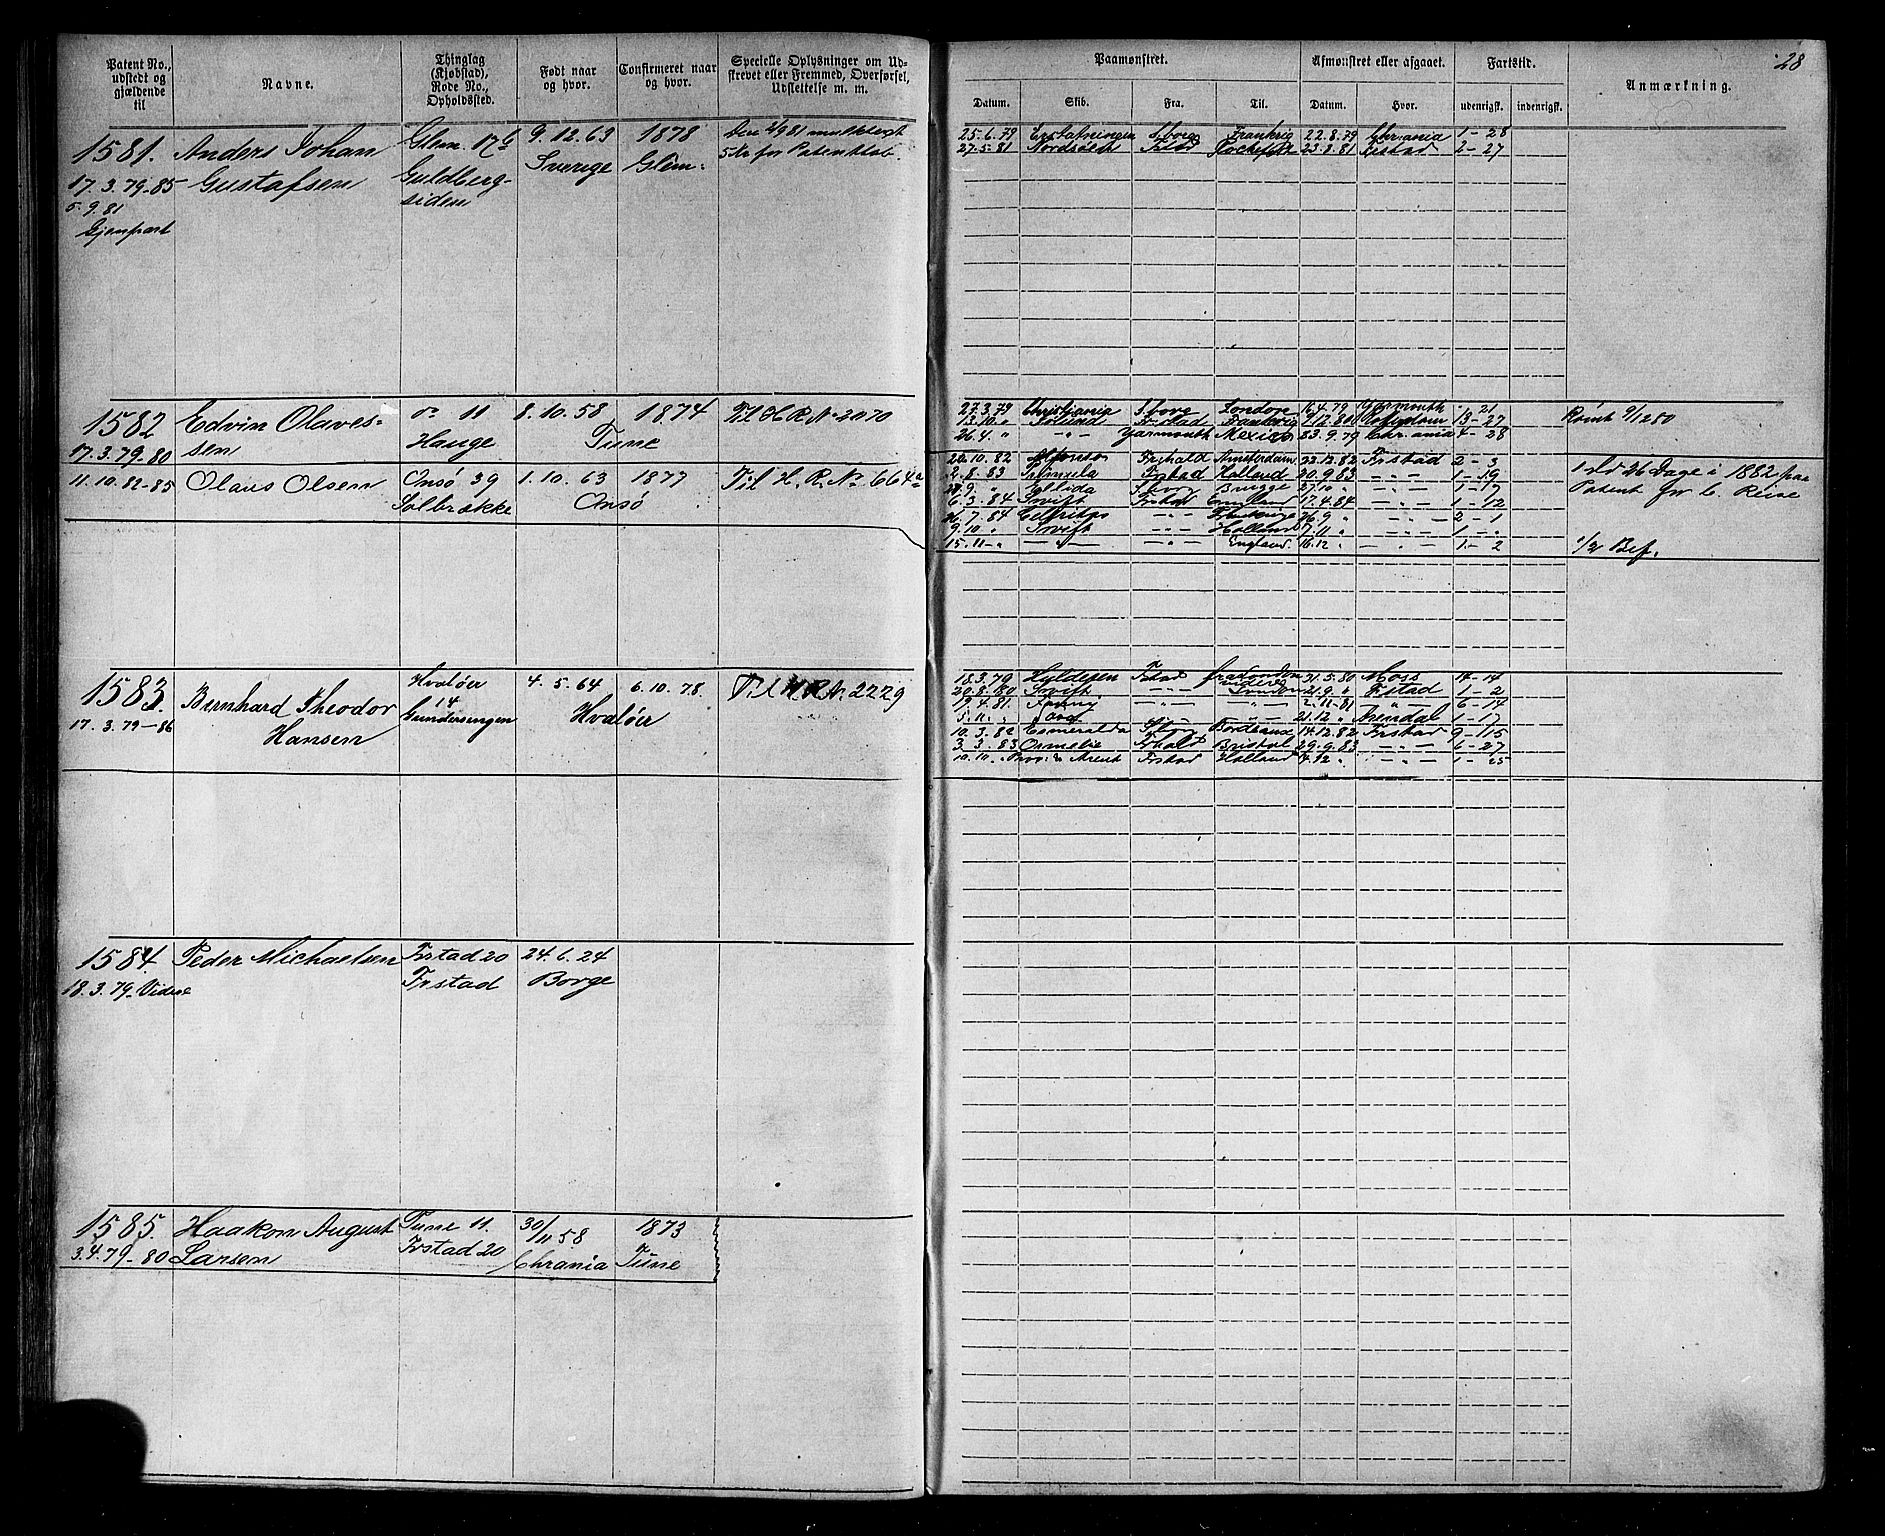 Patent No., udstedt og gjældende til
Navne.
Thinglag (Kjøbstad), Rode No., Opholdssted.
Født naar og hvor.
Confirmeret naar og hvor.
Specielle Oplysninger om Udskrevet eller Fremmed, Overførsel, Udslettelse m. m.
1581. Anders Johan Glem. 17 b 9.12.63 1878
17.3.79-85 Gustafsen Guldberg- Sverige Glem.
5.9.81 siden
Gjenpart
5 Kr for Patenttab.
1582 Edvin Olaves- do 11 8.10.58 1874 Til H.R.No 2070
17.3.79-80 sen Hauge Tune
11.10.82-85 Olaus Olsen Onsø 39 1.10.63 1877 Til H.R.No 664a
Solbrække Onsø
1583. Bernhard Theodor Hvaløer 4.5.64 6.10.78. Til H.R.No 2229
14
17.3.79-86 Hansen Gundersengen Hvaløer
1584. Peder Michaelsen Frstad 20 24.6.24
18.3.79-Videre Frstad Borge
1585. Haakon August Tune 11. 30/11 58 1873
3.4.79-80 Larsen Frstad 20 Chrania Tune
28
Paamønstret.
Afmønstret eller afgaaet.
Fartstid.
Anmærkning.
Datum. Skib. Fra. Til. Datum. Hvor. udenrigsk. indenrigsk.
25.6.79 Erstatningen S.borg Frankrig 22.8.79 Chrania 1-28
27.5.81 Frstad 23.8.81 Frstad 2-27
27.3.79 Christiania S.borg London 16.4.79 Yarmouth " 21
13.10. " Frstad 13-27 Rømt 9/12 80
26.4. " -"- Yarmouth Mexico 23.9.79 Chrania 4-28
20.10.82 Alfonso Frhald Amsterdam 22.12.82 Frstad 2-3
2.8.83 Frstad Holland 20.9.83 -"- 1-19 26 Dage i 1882 paa
S.borg Brugge 1-17 Patent for C. Reise
6.3.84 Swift Frstad England 17.4.84 -"- 1-12
16.7.84 -"- 26.9 " -"- 2-1
9.10 " Swift -"- Holland 7.11 " -"- 1-"
15.11 " -"- -"- England 16.12 " -"- 1-2 1/2 Bef.
18.3.79 Frstad London 21.5.80 Moss 14-14
20.8.80 Swift -"- London 21.9 " Frstad 1-2
17.4.81. Fanny -"- -"- 2.11.81 -"- 6-14
5.11. " -"- -"- 21.12 " Arendal 1-17
10.3.82 Esmeralda S.borg Bordeaux 14.12.82 Frstad 9-15
3.3.83 Ormelie Frhald Bristol 29.9.83 -"- 6-27
10.10. " Arent Frstad Holland 4.12 " -"- 1-25